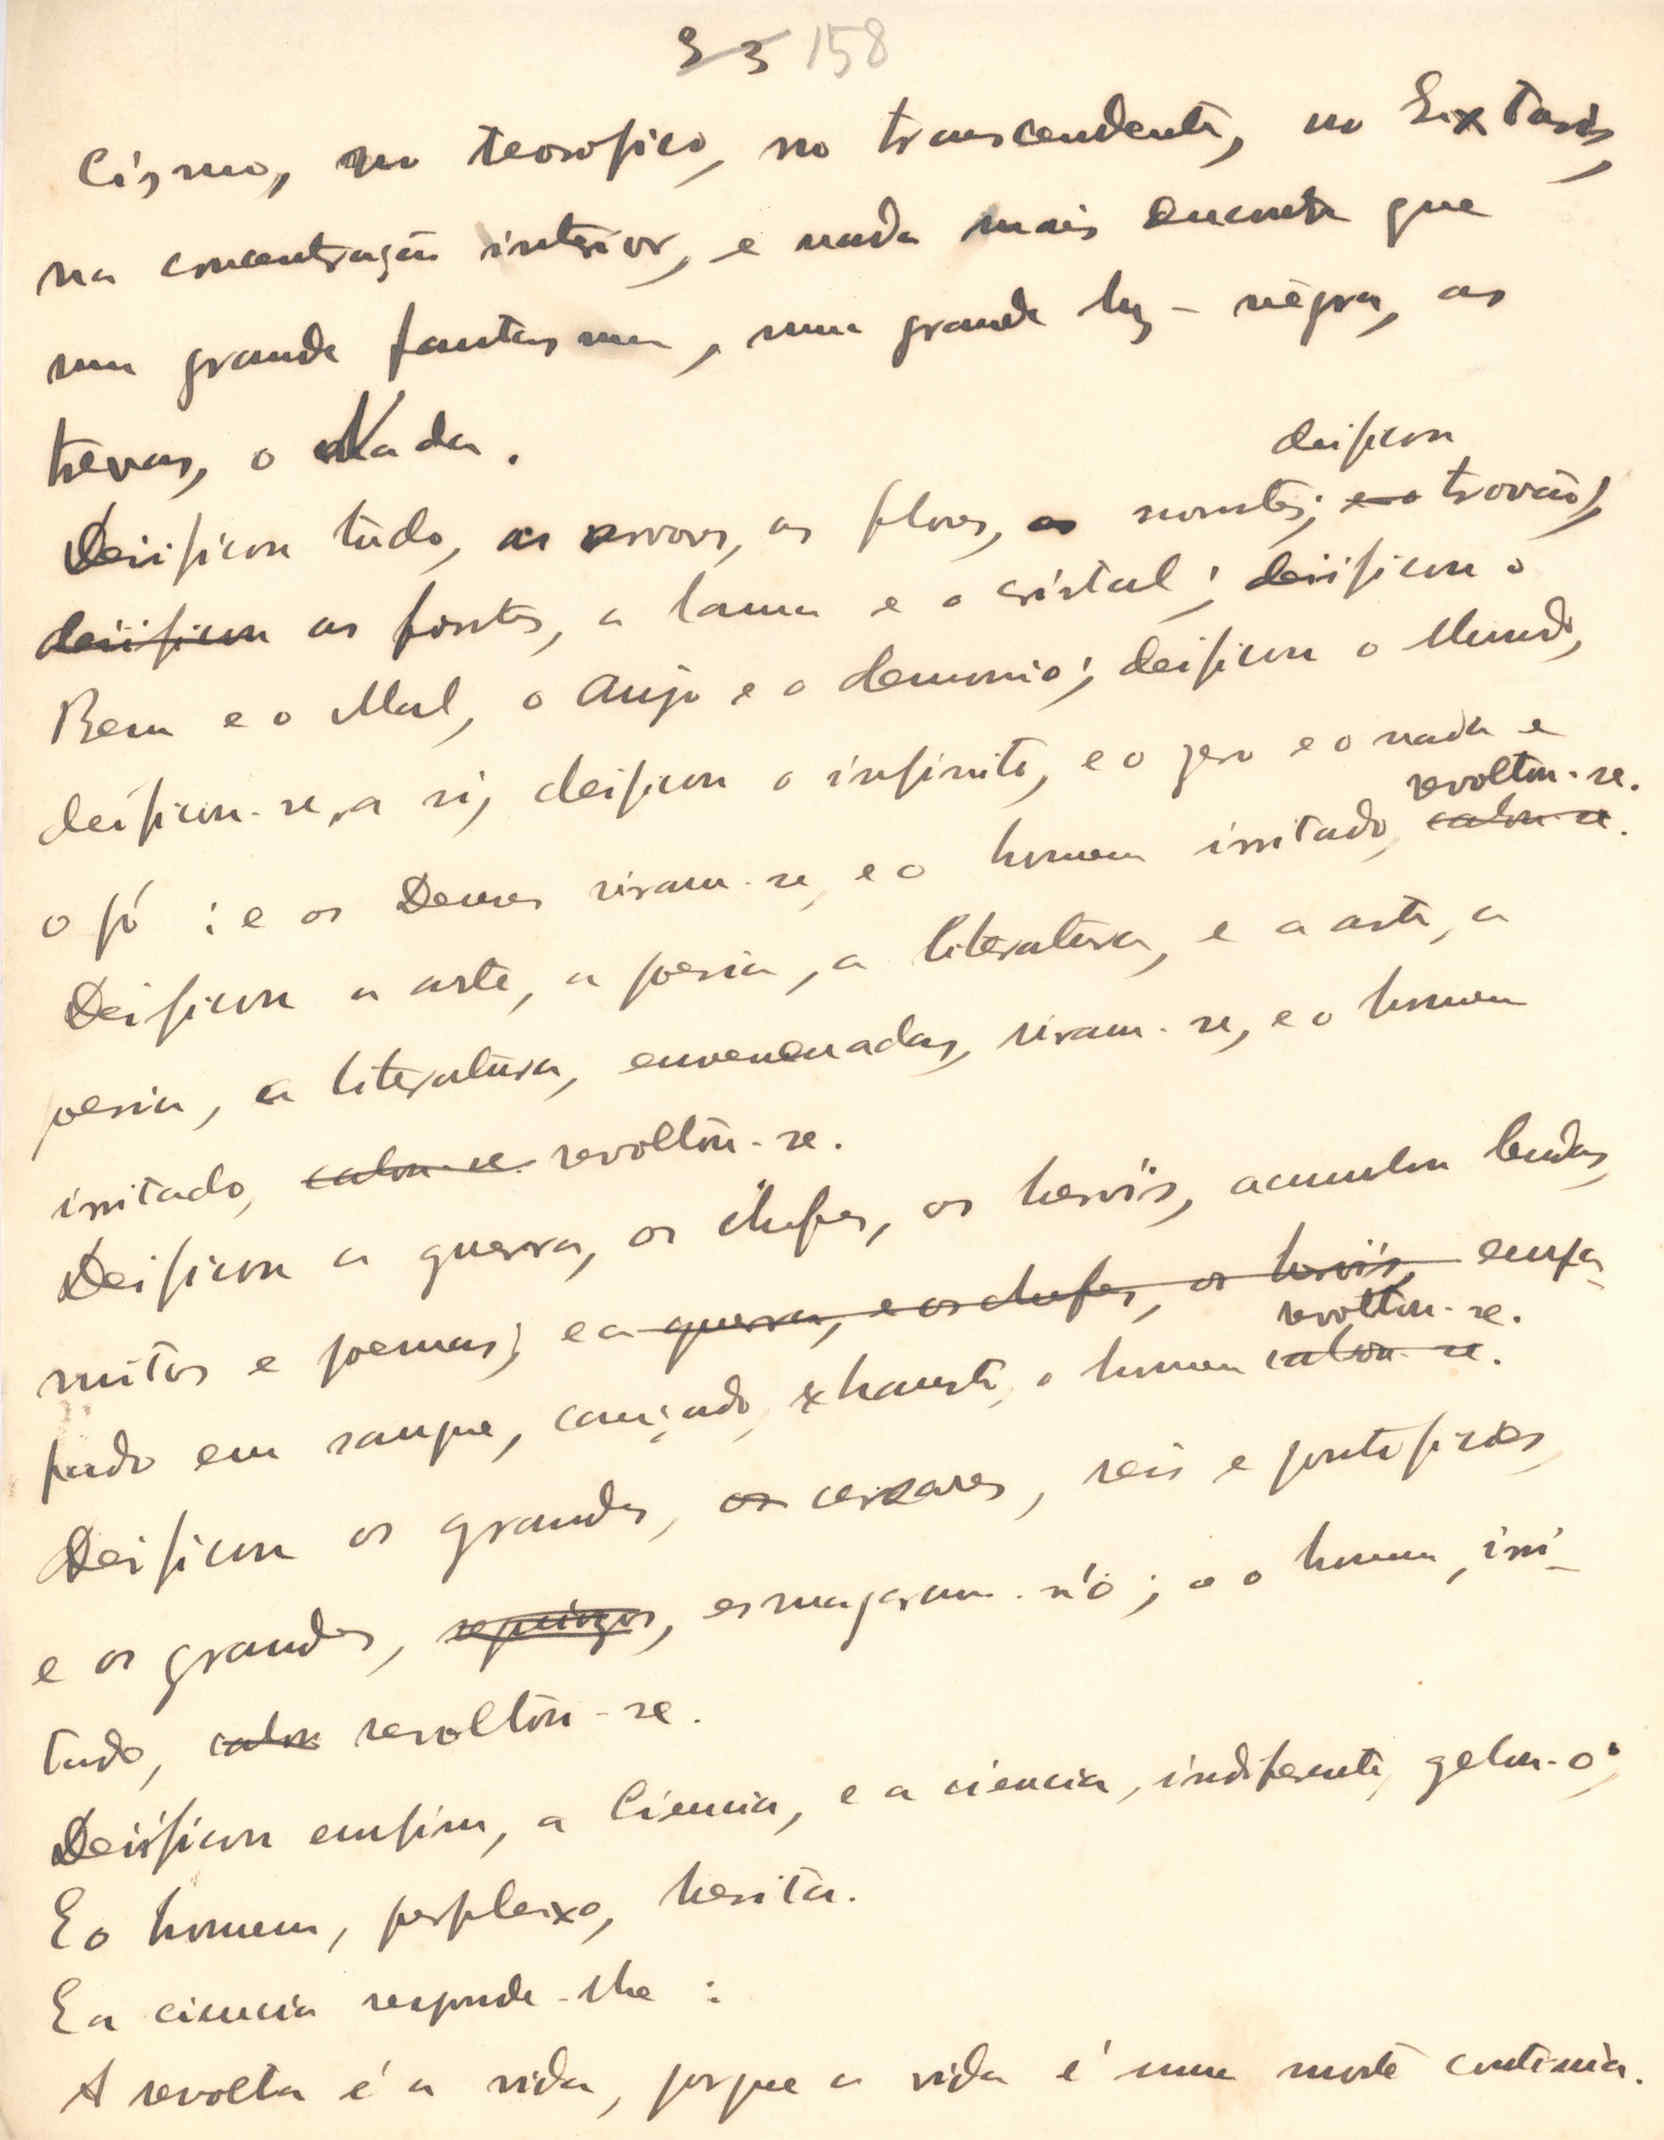 33 158
cismo, no teosofico, no transcendente, no Extasis,
na concentração interior, e nada mais encontra que
um grande fantasma, uma grande luz-négra, as
trevas, o Nada.
deificou
Deificou tudo, as arvores, as flores, os montes; e o trovão,
deificou as fontes, a lama e o cristal; deificou o
Bem e o Mal, o Anjo e o demonio; deificou o Mundo,
deificou-se, a si, deificou o infinito, e o zero e o nada e
revoltou-se.
o pó : e os Deuses riram-se, e o homem irritado, calou-se.
Deificou a arte, a poesia, a literatura, e a arte, a
poesia, a literatura, envenenadas, riram-se, e o homem
irritado, calou-se. revoltou-se.
Deificou a guerra, os chefes, os heróis, acumulou lendas,
mitos e poemas; e a guerra, e os chefes, os heróis, empa-
revoltou-se.
pado em sangue, cançado, exhausto, o homem calou-se.
Deificou os grandes, os cezares, reis e pontifices,
e os grandes, esmagaram-n'o; e o homem, irri-
tado, calou revoltou-se.
Deificou emfim, a Ciencia, e a ciencia, indiferente, gelou-o;
E o homem, perpleixo, hesita.
E a ciencia responde-lhe :
A revolta é a vida, porque a vida é uma morte continua.